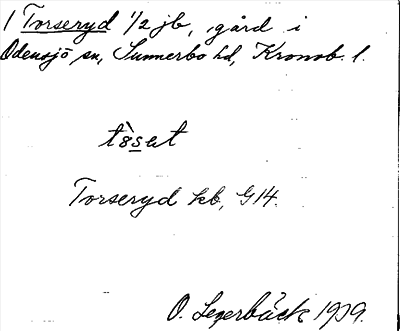 1 Torseryd 1/2 jb, gård i
Odensjö sn, Sunnerbo hd, Kronob. l.
Torseryd kb, G14.
O. Legerbäck 1909.